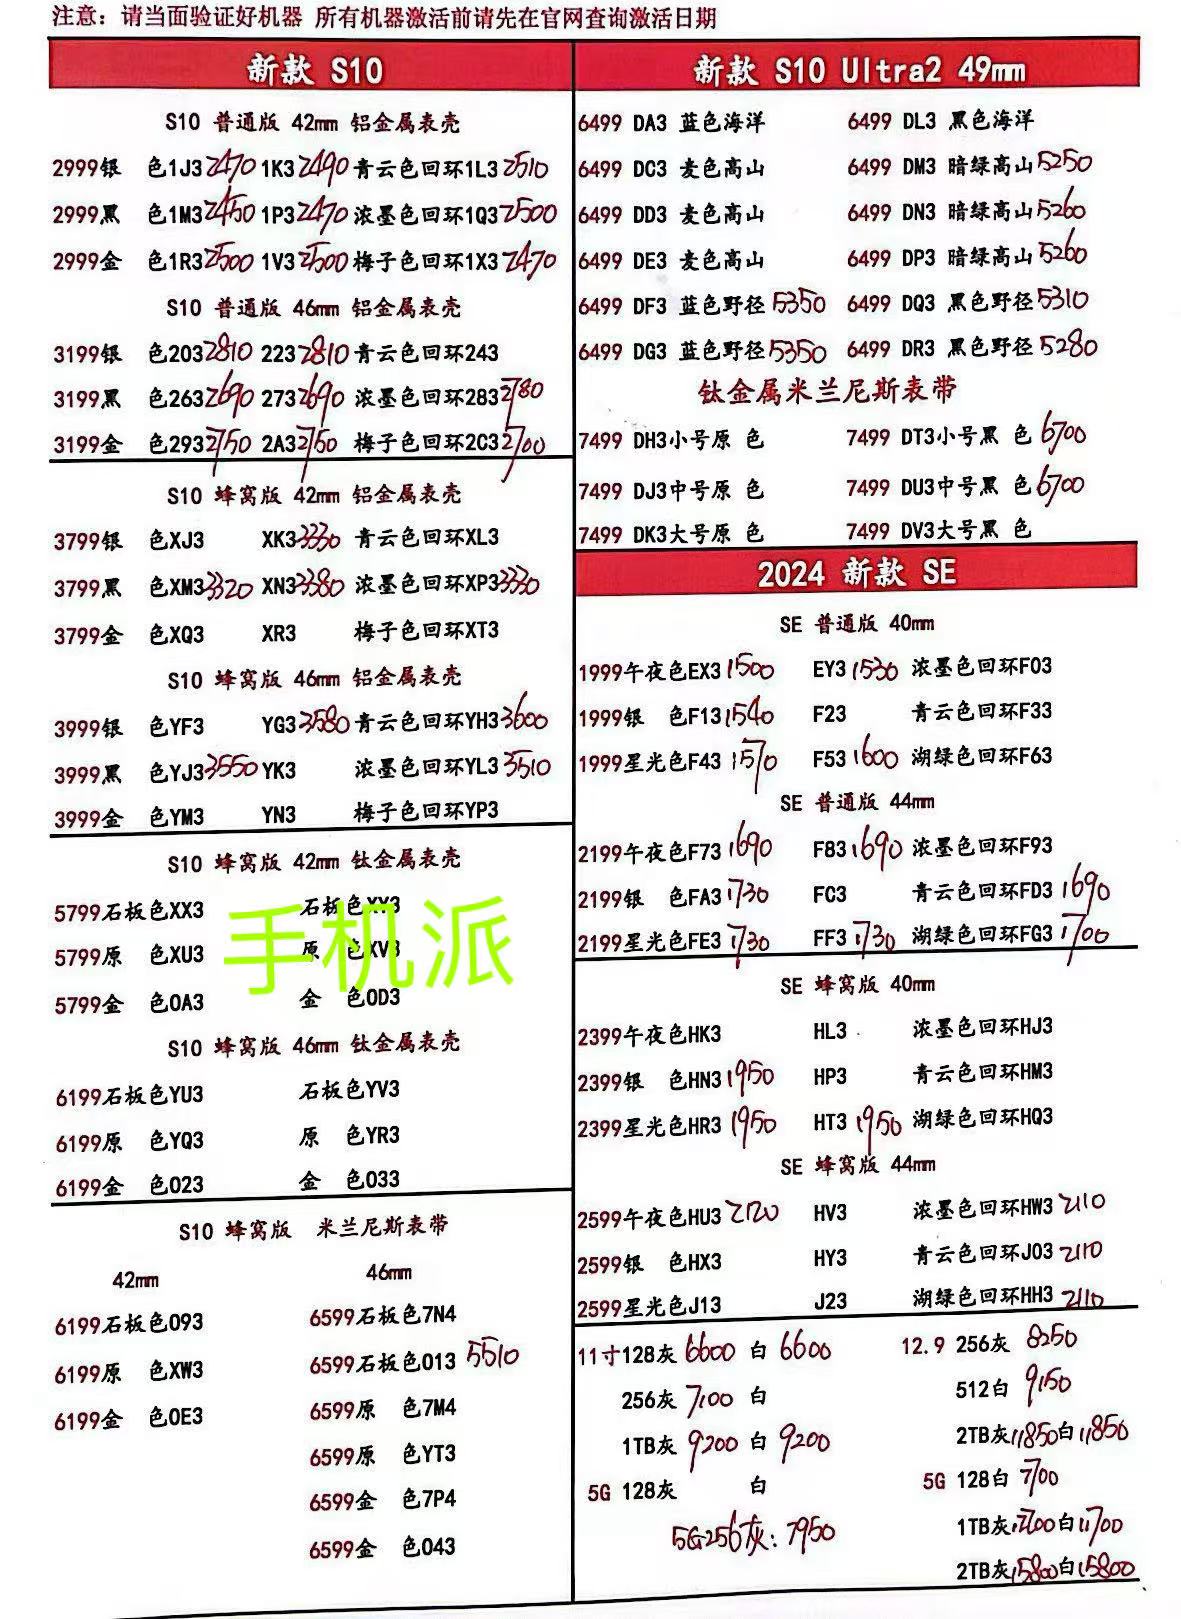 注意：请当面验证好机器 所有机器激活前请先在官网查询激活日期
新款 S10
S10 普通版 42mm 铝金属表壳
2999银 色1J3 2470 1K3 2490 青云色回环1L3 2510
2999黑 色1M3 2450 1P3 2470 浓墨色回环1Q3 2500
2999金 色1R3 2500 1V3 2500 梅子色回环1X3 2470
S10 普通版 46mm 铝金属表壳
3199银 色203 2810 223 2810 青云色回环243
3199黑 色263 2690 273 2690 浓墨色回环283 2780
3199金 色293 2750 2A3 2750 梅子色回环2C3 2700
S10 蜂窝版 42mm 铝金属表壳
3799银 色XJ3 XK3 3330 青云色回环XL3
3799黑 色XM3 3320 XN3 3380 浓墨色回环XP3 3330
3799金 色XQ3 XR3 梅子色回环XT3
S10 蜂窝版 46mm 铝金属表壳
3999银 色YF3 YG3 3580 青云色回环YH3 3600
3999黑 色YJ3 3550 YK3 浓墨色回环YL3 3510
3999金 色YM3 YN3 梅子色回环YP3
S10 蜂窝版 42mm 钛金属表壳
5799石板色XX3 石板色XY3
5799原 色XU3 原 色XV3
手机派
5799金 色0A3 金 色0D3
S10 蜂窝版 46mm 钛金属表壳
6199石板色YU3 石板色YV3
6199原 色YQ3 原 色YR3
6199金 色023 金 色033
S10 蜂窝版 米兰尼斯表带
42mm 46mm
6199石板色093 6599石板色7N4
6199原 色XW3 6599石板色013 5510
6199金 色0E3 6599原 色7M4
6599原 色YT3
6599金 色7P4
6599金 色043
新款 S10 Ultra2 49mm
6499 DA3 蓝色海洋 6499 DL3 黑色海洋
6499 DC3 麦色高山 6499 DM3 暗绿高山 5250
6499 DD3 麦色高山 6499 DN3 暗绿高山 5260
6499 DE3 麦色高山 6499 DP3 暗绿高山 5260
6499 DF3 蓝色野径 5350 6499 DQ3 黑色野径 5310
6499 DG3 蓝色野径 5350 6499 DR3 黑色野径 5280
钛金属米兰尼斯表带
7499 DH3小号原 色 7499 DT3小号黑 色 6700
7499 DJ3中号原 色 7499 DU3中号黑 色 6700
7499 DK3大号原 色 7499 DV3大号黑 色
2024 新款 SE
SE 普通版 40mm
1999午夜色EX3 1500 EY3 1530 浓墨色回环F03
1999银 色F13 1540 F23 青云色回环F33
1999星光色F43 1570 F53 1600 湖绿色回环F63
SE 普通版 44mm
2199午夜色F73 1690 F83 1690 浓墨色回环F93
2199银 色FA3 1730 FC3 青云色回环FD3 1690
2199星光色FE3 1730 FF3 1730 湖绿色回环FG3 1700
SE 蜂窝版 40mm
2399午夜色HK3 HL3 浓墨色回环HJ3
2399银 色HN3 1950 HP3 青云色回环HM3
2399星光色HR3 1950 HT3 1950 湖绿色回环HQ3
SE 蜂窝版 44mm
2599午夜色HU3 2120 HV3 浓墨色回环HW3 2110
2599银 色HX3 HY3 青云色回环J03 2110
2599星光色J13 J23 湖绿色回环HH3 2110
11寸128灰 6600 白 6600 12.9 256灰 8250
256灰 7100 白 512白 9150
1TB灰 9200 白 9200 2TB灰 11850 白 11850
5G 128灰 白 5G 128白 7700
5G256灰：7950 1TB灰 12700 白 11700
2TB灰 15800 白 15800